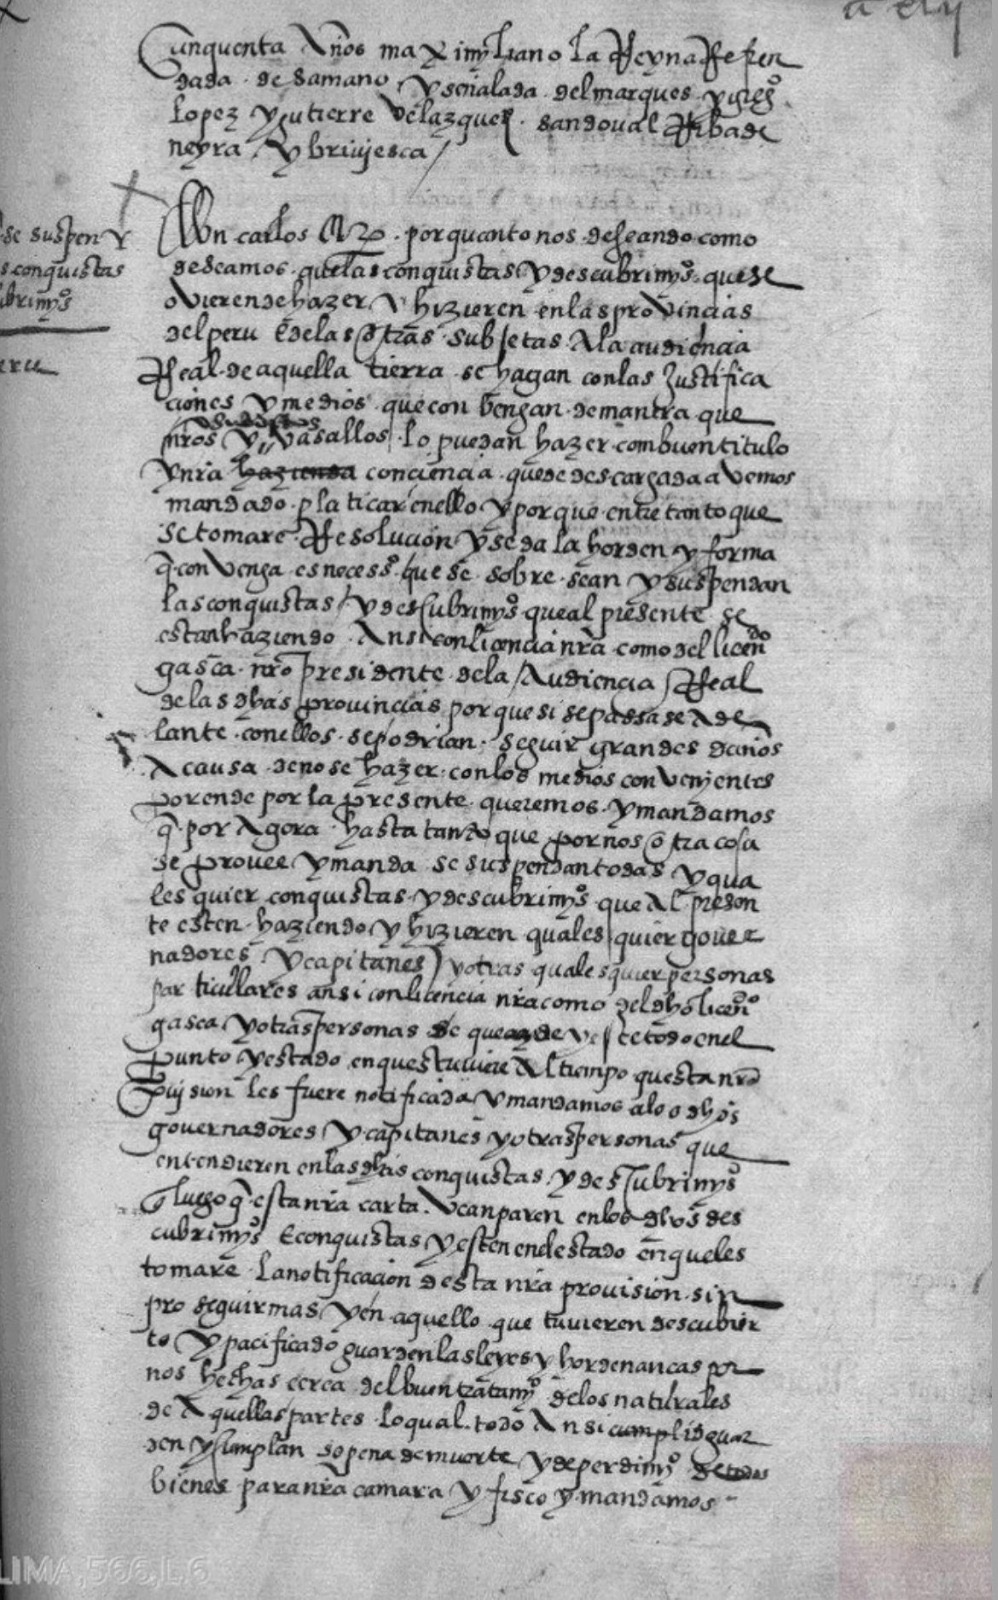 Cinquenta Años maximyliano la Reyna Refren
dada de Samano y señalada del marques y
lopez y gutierre Velazquez sandoval Ribade
neyra y briviesca /
se suspen
s conquistas
ubrimyos
eru
Don carlos &c por quanto nos deseando como
deseamos que las conquistas y descubrimyos que se
oVieren de hazer y hizieren en las proVincias
del peru E de las otras subjetas A la audiencia
Real de aquella tierra se hagan con las Justifica
ciones y medios que conbengan de manera que
nros vasallos lo puedan hazer con buen titulo
y nra hazienda conciencia quede descargada aVemos
mandado platicar en ello y porque entretanto que
se tomare Resolucion y se da la horden y forma
q conVenga es necesso que se sobresean y suspendan
las conquistas y descubrimyos que al presente se
estan haziendo Ansi con licencia nra como del licendo
gasca nro presidente de la Audiencia Real
de las dhas provincias porque si se passase Ade
lante con ellos se podrian seguir grandes daños
A causa de no se hazer con los medios conVenyentes
por ende por la presente queremos y mandamos
q por Agora hasta tanto que por nos otra cosa
se provee y manda se suspendan todas y qua
les quier conquistas y descubrimyos que Al presen
te esten haziendo y hizieren qualesquier gover
nadores y capitanes y otras qualesquier personas
particullares ansi con licencia nra como del dho licendo
gasca y otras personas de que quede y este todo en el
punto y estado en questuviere Al tiempo questa nra
provision les fuere notificada y mandamos a los dhos
governadores y capitanes y otras personas que
entendieren en las dhas conquistas y descubrimyos
luego q esta nra carta Vean paren en los dhos des
cubrimyos E conquistas y esten en el estado en que les
tomare la notificacion desta nra provision sin
proseguir mas y en aquello que tuvieren descubier
to y pacificado guarden las leyes y hordenancas por
nos hechas cerca del buen tratamyo de los naturales
de Aquellas partes lo qual todo Ansi cumplid guar
den y cumplan so pena de muerte y de perdimyo de todos
bienes para nra camara y fisco y mandamos
LIMA,566,L.6